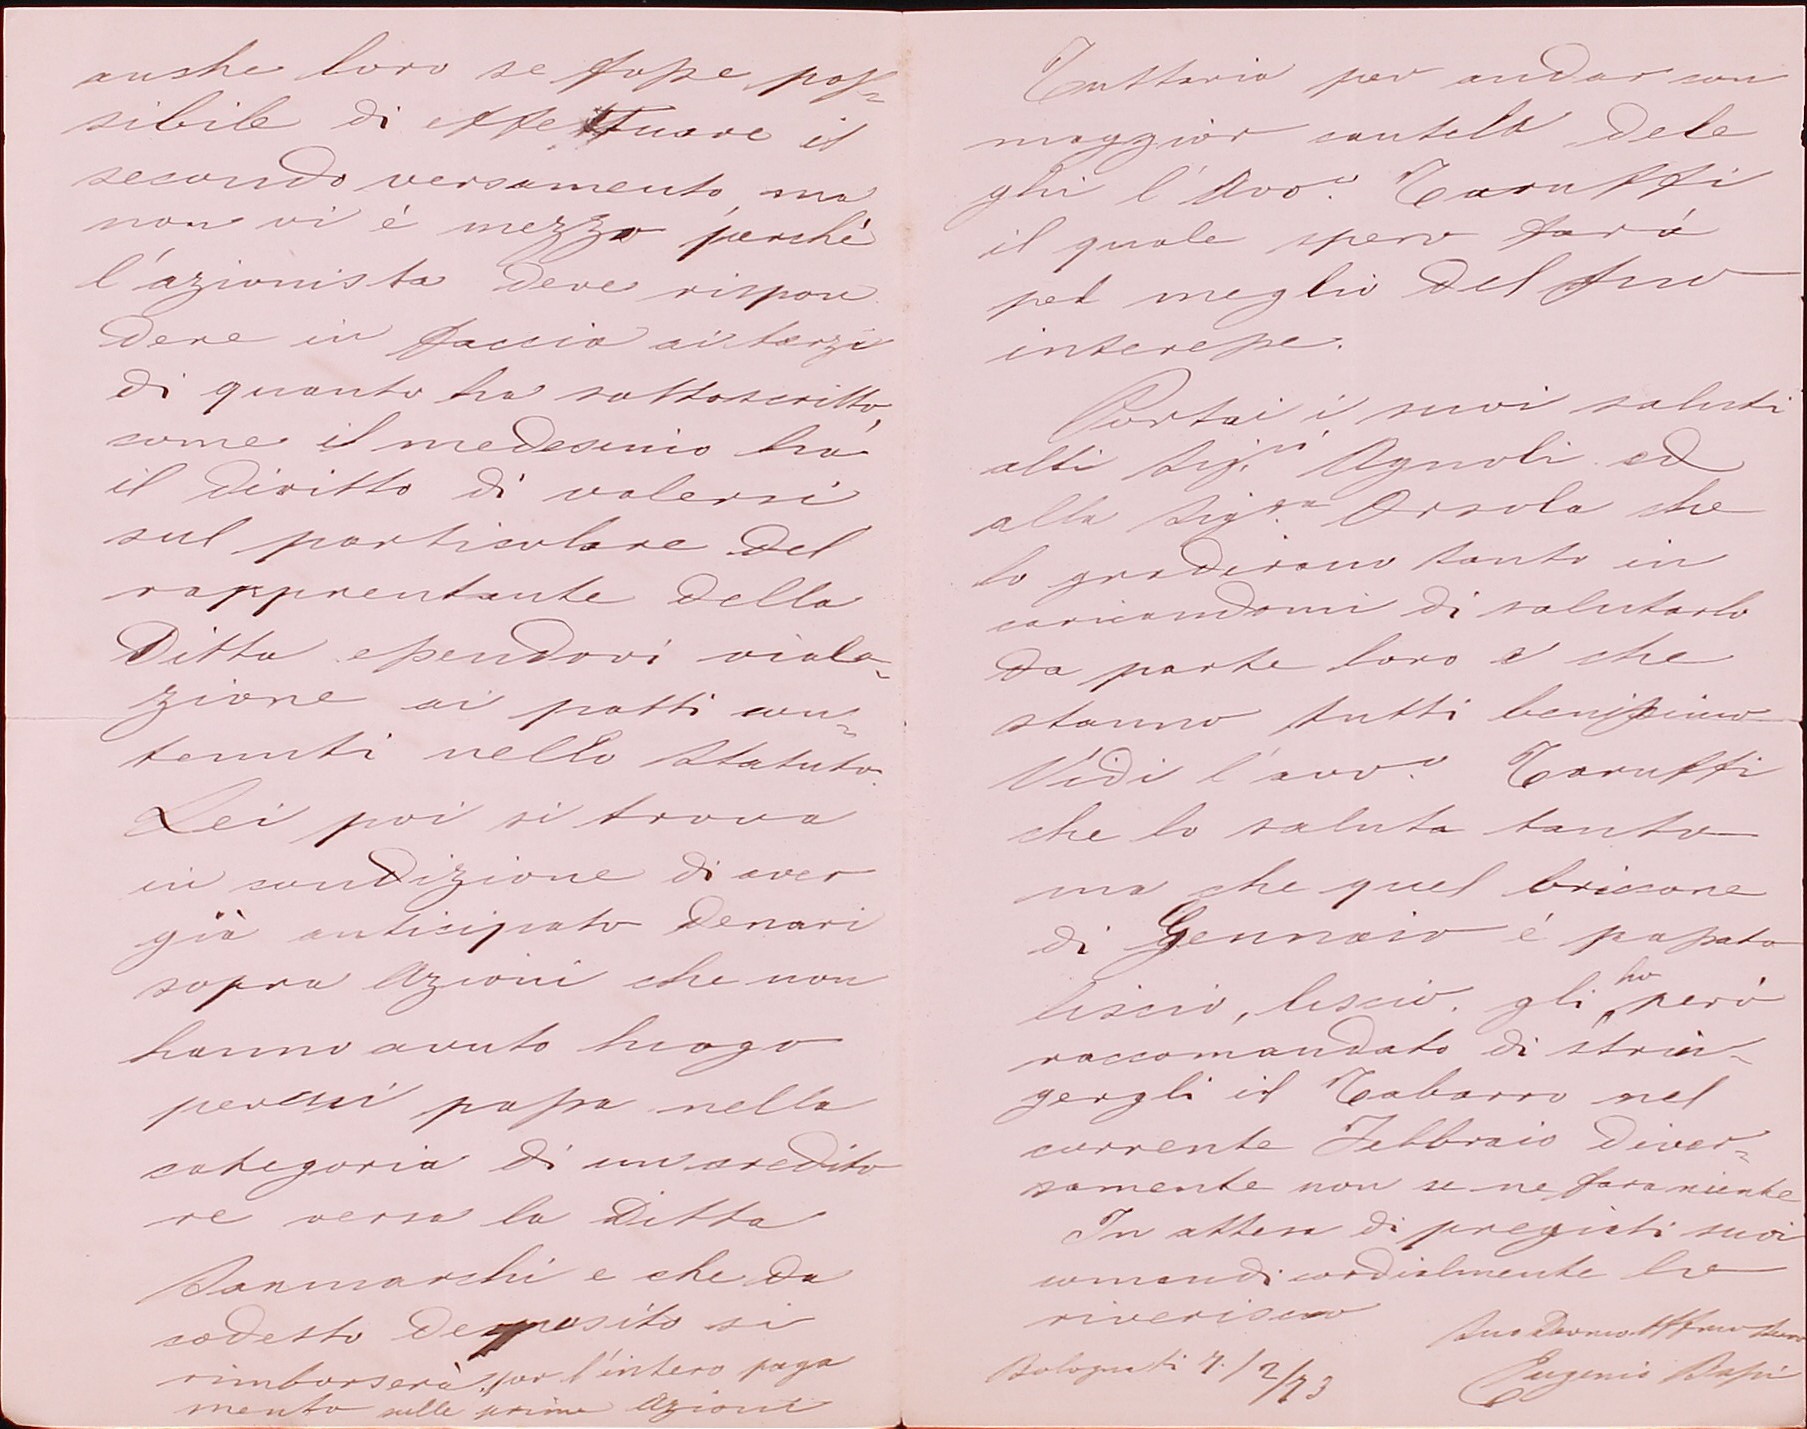 anche loro se fosse pos=
sibile di effettuare il
secondo versamento, ma
non vi è mezzo perchè
l'azionista deve rispon
dere in faccia ai terzi
di quanto ha sottoscritto,
come il medesimo ha
il diritto di valersi
sul particolare del
rapprentante della
Ditta essendovi viola=
zione ai patti con=
tenuti nello Statuto.
Lei poi si trova
in condizione di aver
già anticipato denari
sopra Azioni che non
hanno avuto luogo
percui passa nella
categoria di un credito
re verso la Ditta
Sanmarchi e che da
codesto deposito si
rimborserà per l'intero paga
mento sulle prime Azioni
Tuttavia per andar con
maggior cautela dele
ghi l'Avvo. Taruffi
il quale spero farà
pel meglio del suo
interesse.
Portai i suoi saluti
alli Sig.ri Agnoli ed
alla Sig.ra Orsola che
lo gradirono tanto in
caricandomi di salutarlo
da parte loro e che
stanno tutti benissimo
Vidi l'avvo. Taruffi
che lo saluta tanto
ma che quel briccone
di Gennaio è passato
liscio, liscio. gli ho però
raccomandato di strin=
gergli il Tabarro nel
corrente Febbraio diver=
samente non se ne fara niente
In attesa di pregiati suoi
comandi cordialmente lo
riverisco
Suo Devmo Affmo Servo
Bologna li 7./2/73
Eugenio Bassi